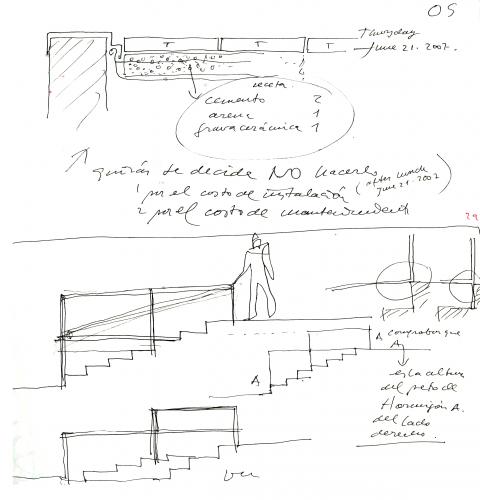 05
Thursday
June 21. 2002.
T T T
receta.
cemento 2
arena 1
grava cerámica 1
quizás se decide NO hacerlo
1 por el costo de instalación (after lunch
June 21. 2002)
2 por el costo de mantenimiento
29
A comprobar que
A
A
es la altura
del peto de
Hormigón A.
del lado
derecho.